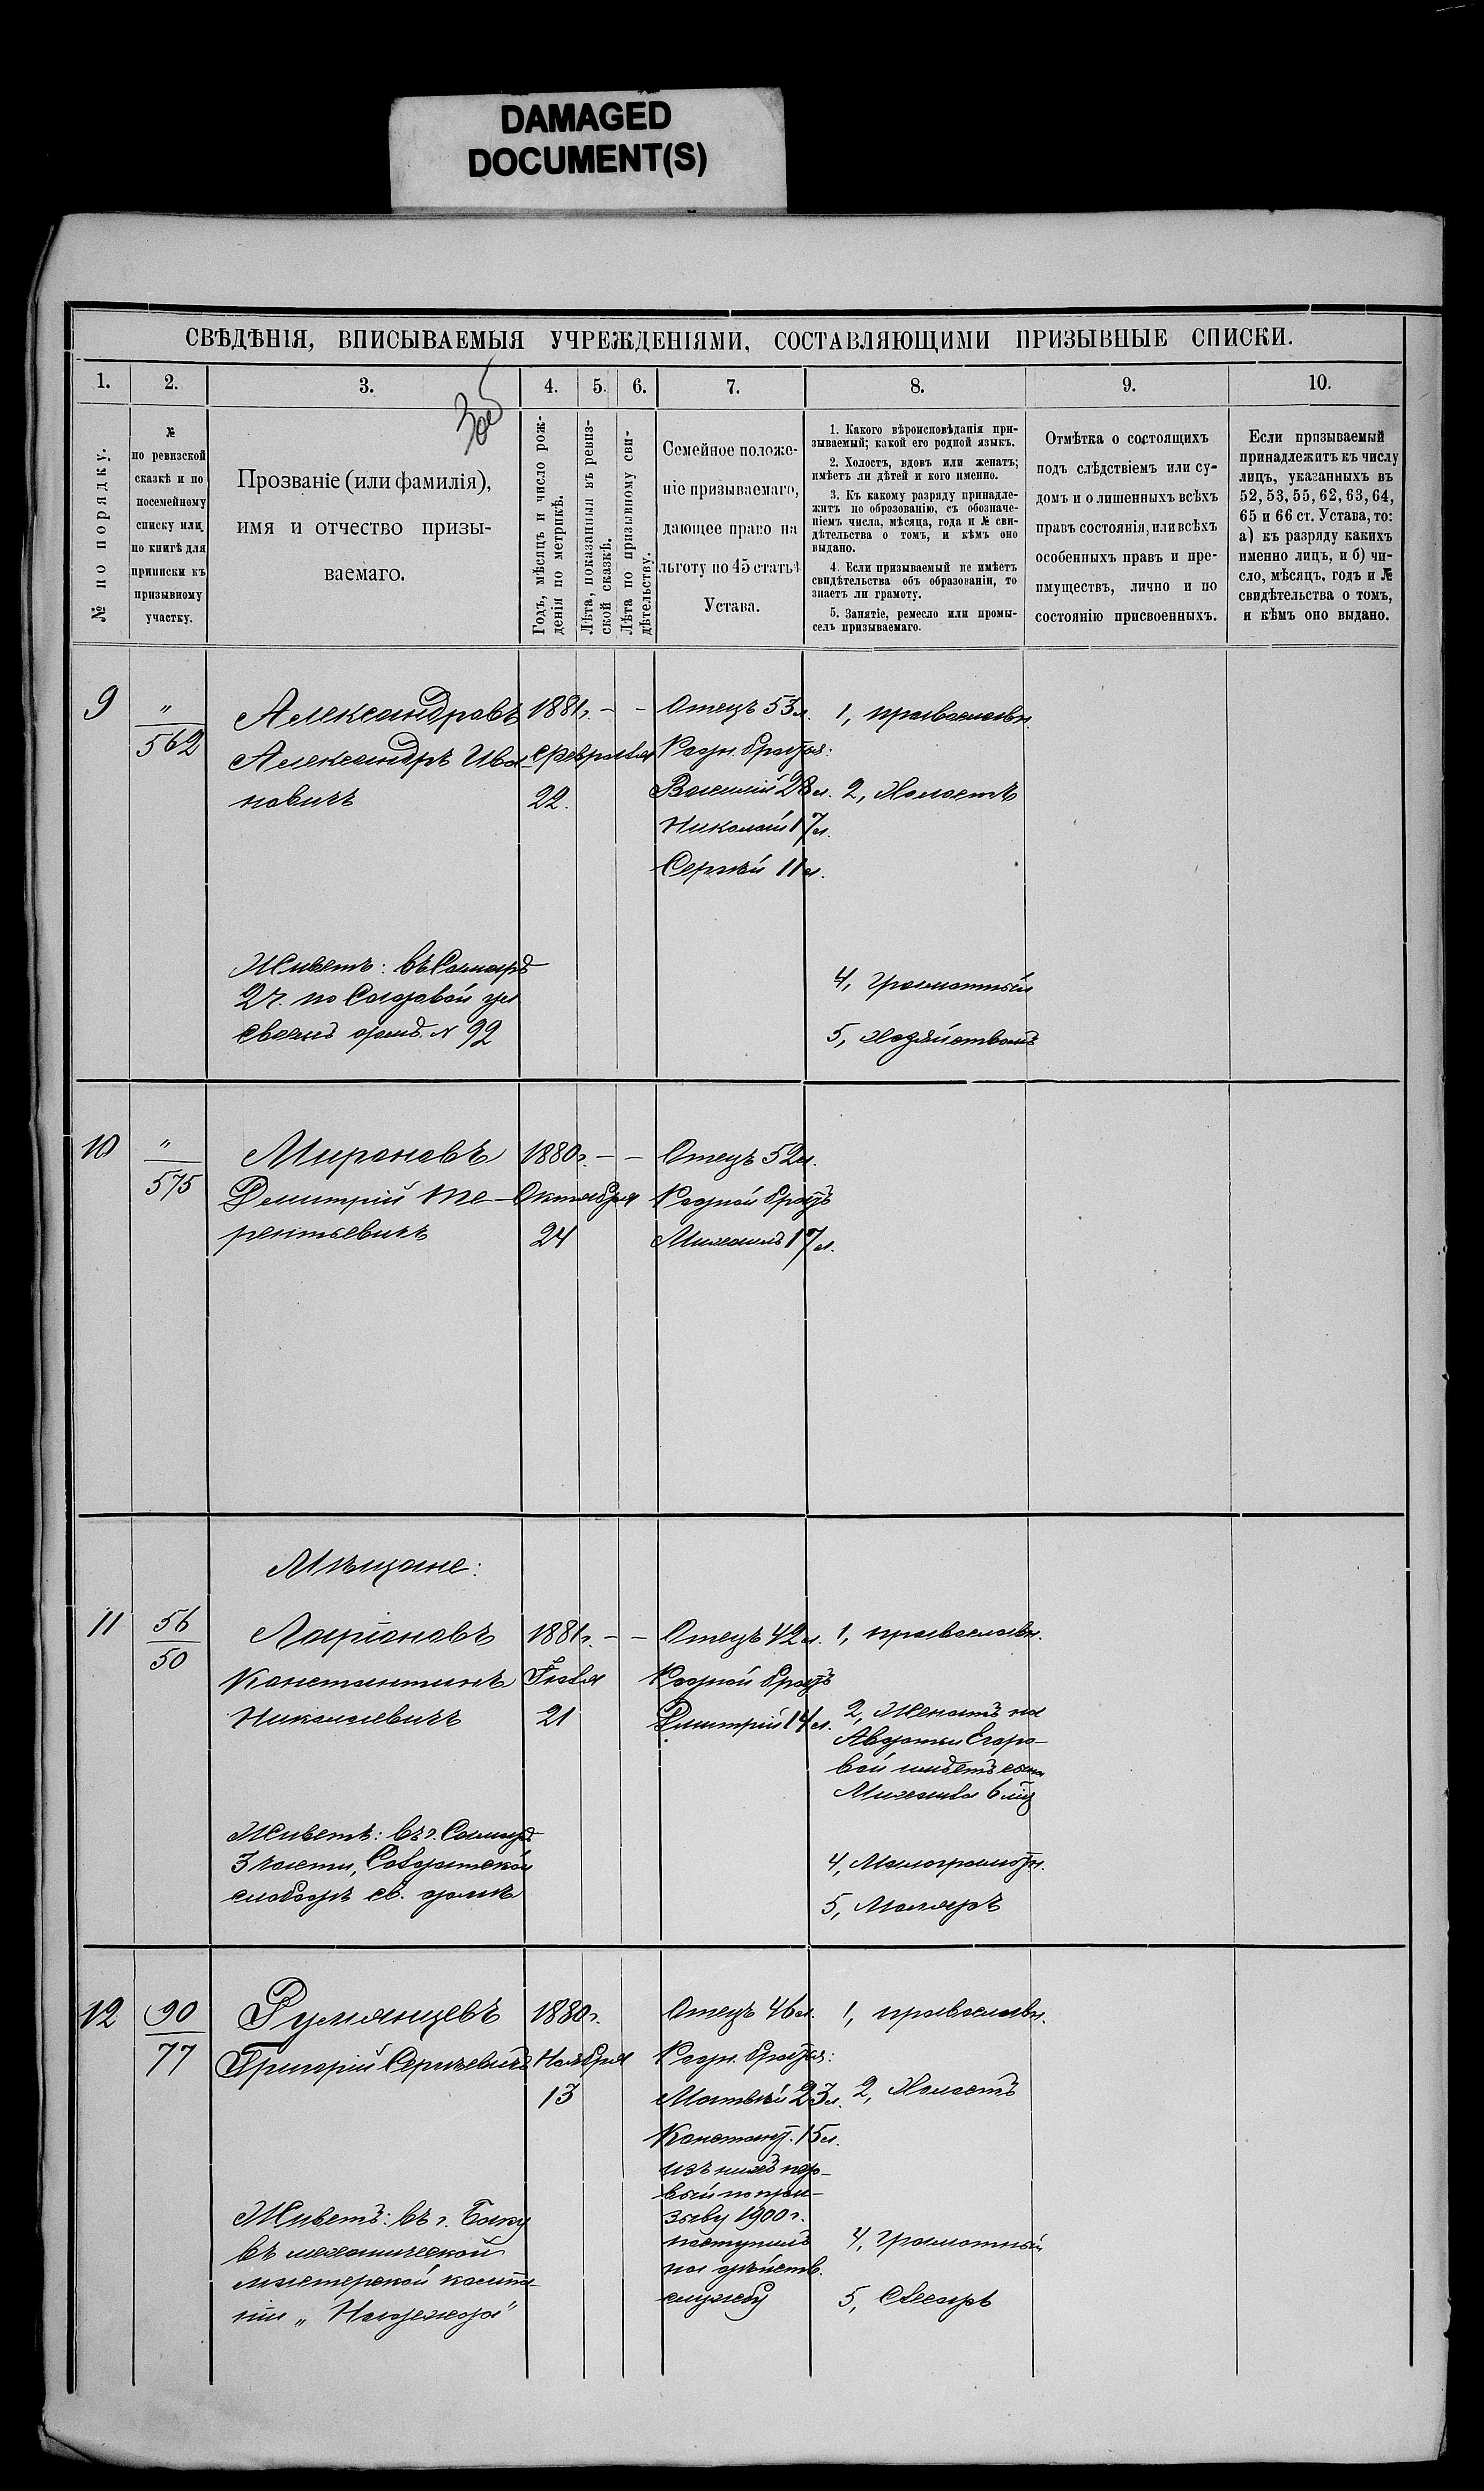 DAMAGED
DOCUMENT(S)
СВѢДѢНІЯ, ВПИСЫВАЕМЫЯ УЧРЕЖДЕНІЯМИ, СОСТАВЛЯЮЩИМИ ПРИЗЫВНЫЕ СПИСКИ.
1.
2.
3.
4.
5.
6.
7.
8.
9.
10.
№ по порядку.
№
по ревизской
сказкѣ и по
посемейному
списку или
по книгѣ для
приписки къ
призывному
участку.
Прозваніе (или фамилія),
имя и отчество призы-
ваемаго.
Годъ, мѣсяцъ и число рож-
денія по метрикѣ.
Лѣта, показанныя въ ревиз-
ской сказкѣ.
Лѣта по призывному сви-
дѣтельству.
Семейное положе-
ніе призываемаго,
дающее право на
льготу по 45 статьѣ
Устава.
1. Какого вѣроисповѣданія при-
зываемый; какой его родной языкъ.
2. Холостъ, вдовъ или женатъ;
имѣетъ ли дѣтей и кого именно.
3. Къ какому разряду принадле-
житъ по образованію, съ обозначе-
ніемъ числа, мѣсяца, года и № сви-
дѣтельства о томъ, и кѣмъ оно
выдано.
4. Если призываемый не имѣетъ
свидѣтельства объ образованіи, то
знаетъ ли грамоту.
5. Занятіе, ремесло или промы-
селъ призываемаго.
Отмѣтка о состоящихъ
подъ слѣдствіемъ или су-
домъ и о лишенныхъ всѣхъ
правъ состоянія, или всѣхъ
особенныхъ правъ и пре-
имуществъ, лично и по
состоянію присвоенныхъ.
Если призываемый
принадлежитъ къ числу
лицъ, указанныхъ въ
52, 53, 55, 62, 63, 64,
65 и 66 ст. Устава, то:
а) къ разряду какихъ
именно лицъ, и б) чи-
сло, мѣсяцъ, годъ и №
свидѣтельства о томъ,
и кѣмъ оно выдано.
9
"
562
Александровъ
Александръ Ива-
новичъ
1881г.
Февраля
22.
- -
Отецъ 53 л.
Родн. братья:
Василій 28 л.
Николай 17 л.
Сергѣй 11 л.
1, православн.
2, Холостъ
4, грамотный
5, Хозяйствомъ
Живетъ: въ Самарѣ
2 ч. по Садовой ул
своемъ домѣ № 92
10
"
575
Мироновъ
Дмитрій Те-
рентьевичъ
1880г.
Октября
24
- -
Отецъ 52 л.
Родной братъ
Михаилъ 17 л.
Мѣщане:
11
56
50
Ларіоновъ
Константинъ
Николаевичъ
1881г.
Іюля
21
- -
Отецъ 42 л.
Родной братъ
Дмитрій 14 л.
1, православн.
2, Женатъ на
Авдотьи Егоро-
вой имѣетъ сына
Михаила 6 мѣц
4, Малограмотн.
5, Маляръ
Живетъ: въ г. Самарѣ
3 части, Солдатской
слободѣ св. домѣ
12
90
77
Румянцевъ
Григорій Сергѣевичъ
1880г.
Ноября
13
Отецъ 46 л.
Родн. братья:
Матвѣй 23 л.
Констант. 15 л.
изъ нихъ пер-
вый по при-
зыву 1900 г.
поступилъ
на дѣйств.
службу
1, православн.
2, Холостъ
4, грамотный
5, Слесарь
Живетъ: въ г. Баку
въ механической
мастерской компа-
ніи „Надежда"